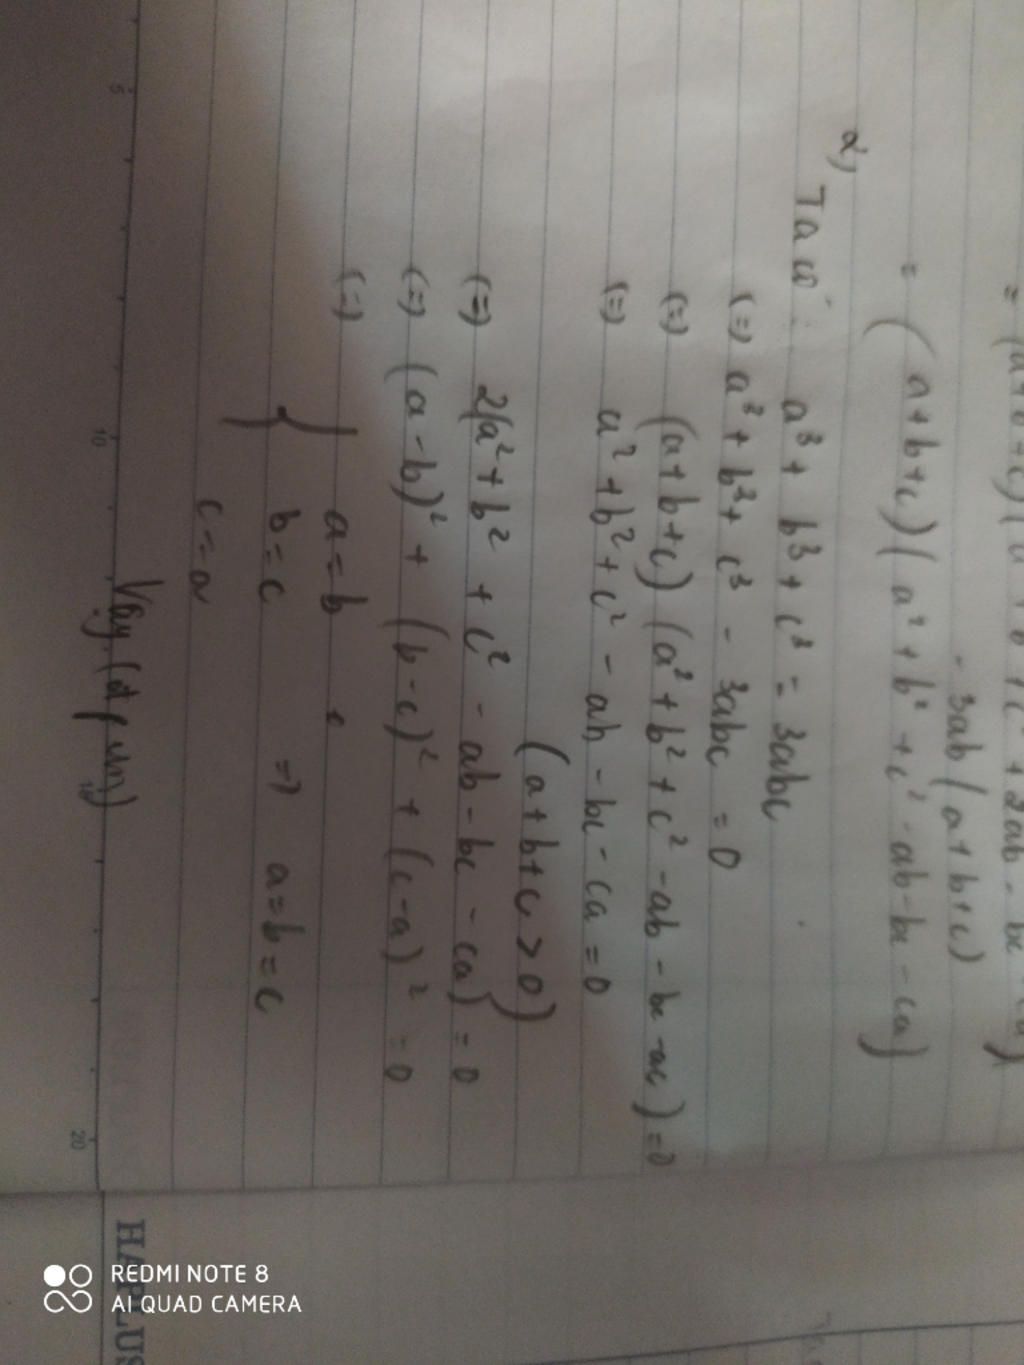 - 3ab (a+b+c)
= (a+b+c) (a² + b² + c² - ab - bc - ca)
2, Ta có: a³ + b³ + c³ = 3abc
(=) a³ + b³ + c³ - 3abc = 0
(=) (a+b+c) (a² + b² + c² - ab - bc - ac) = 0
(=) a² + b² + c² - ab - bc - ca = 0
(a+b+c > 0)
(=) 2(a² + b² + c² - ab - bc - ca) = 0
(=) (a-b)² + (b-c)² + (c-a)² = 0
(=) { a = b
b = c => a = b = c
c = a
Vậy (đpcm)
5 10 15 20
REDMI NOTE 8
AI QUAD CAMERA